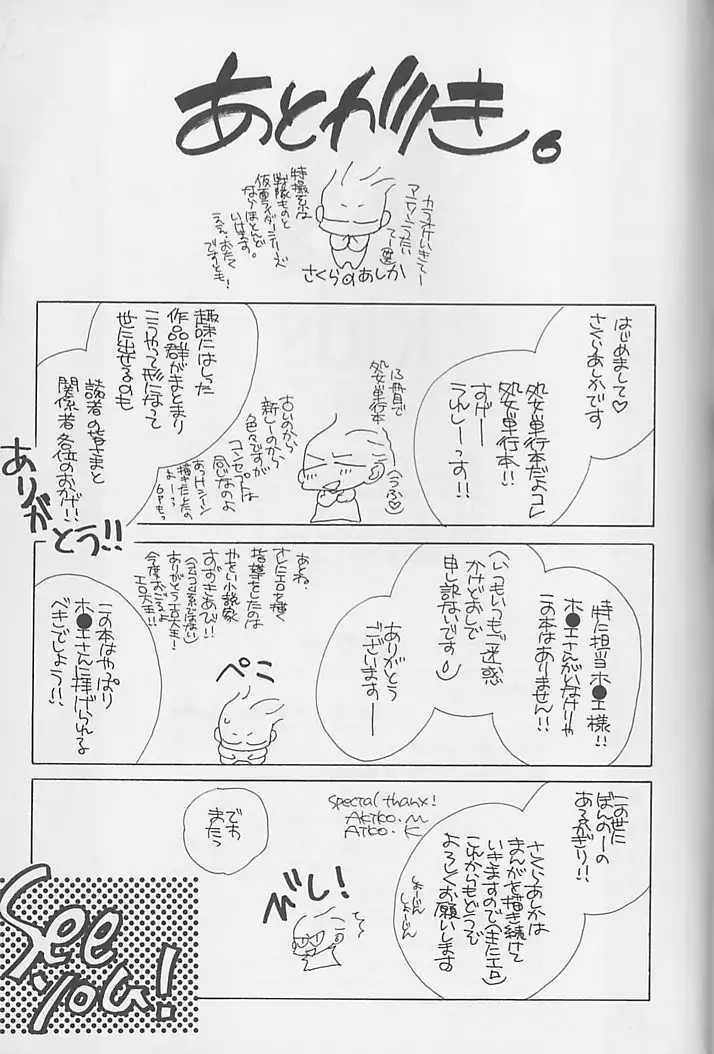 あとがき。
カラオケいきてー
アニソンうたい
てー
特撮系は
戦隊ものと
仮面ライダーシリーズ
ならほとんど
いけます。
ええ、おたく
ですとも!
さくらのあしか
はじめまして♡
さくらあしかです
処女単行本だよコレ
処女単行本!!
すげーー
うれしーっす!!
13冊目で
処女単行本
(うふ♡)
古いのから
新しーのから
色々ですが
コンセプトは
同じなのよ
あっけシーン
描きたしたの
よーっ
6Pもっ
趣味にはしった
作品群がまとまり
こうやって形になって
世に出せるのも
読者の皆さまと
関係者各位のおかげ!!
ありがとう!!
特に担当ホ●エ様!!
ホ●エさんがいなけりゃ
この本はありません!!
(いつもいつもご迷惑
かけどおしで
申し訳ないです)
ありがとう
ございますーー
あとね、
さしたエロを描く
指導をしたのは
やおい小説家
すずきあび!!
(デュフィ系ではない)
ありがとうエロ大王!
今度おごるよ
エロ大王!!
ペこ
この本はやっぱり
ホ●エさんに捧げられる
べきでしょう!!
この世に
ぼんのーの
あるかぎり!!
さくらあしかは
まんがを描き続けて
いきますので(またエロ)
これからもどうぞ
よろしくお願いします
しょーじん
しょーじん
Special thanx!
AKIKO.M
AIKO.K
びし!
でわ
またっ
See
you!